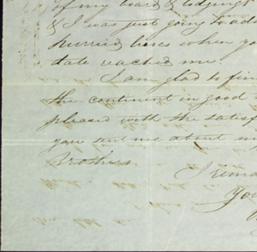 of my board & lodgings
& I was just going to add
hurried lines when yo
date reached me.
I am glad to fin
the continent in good
pleased with the satisf
you sent me about m
Brothers.
I rema
You